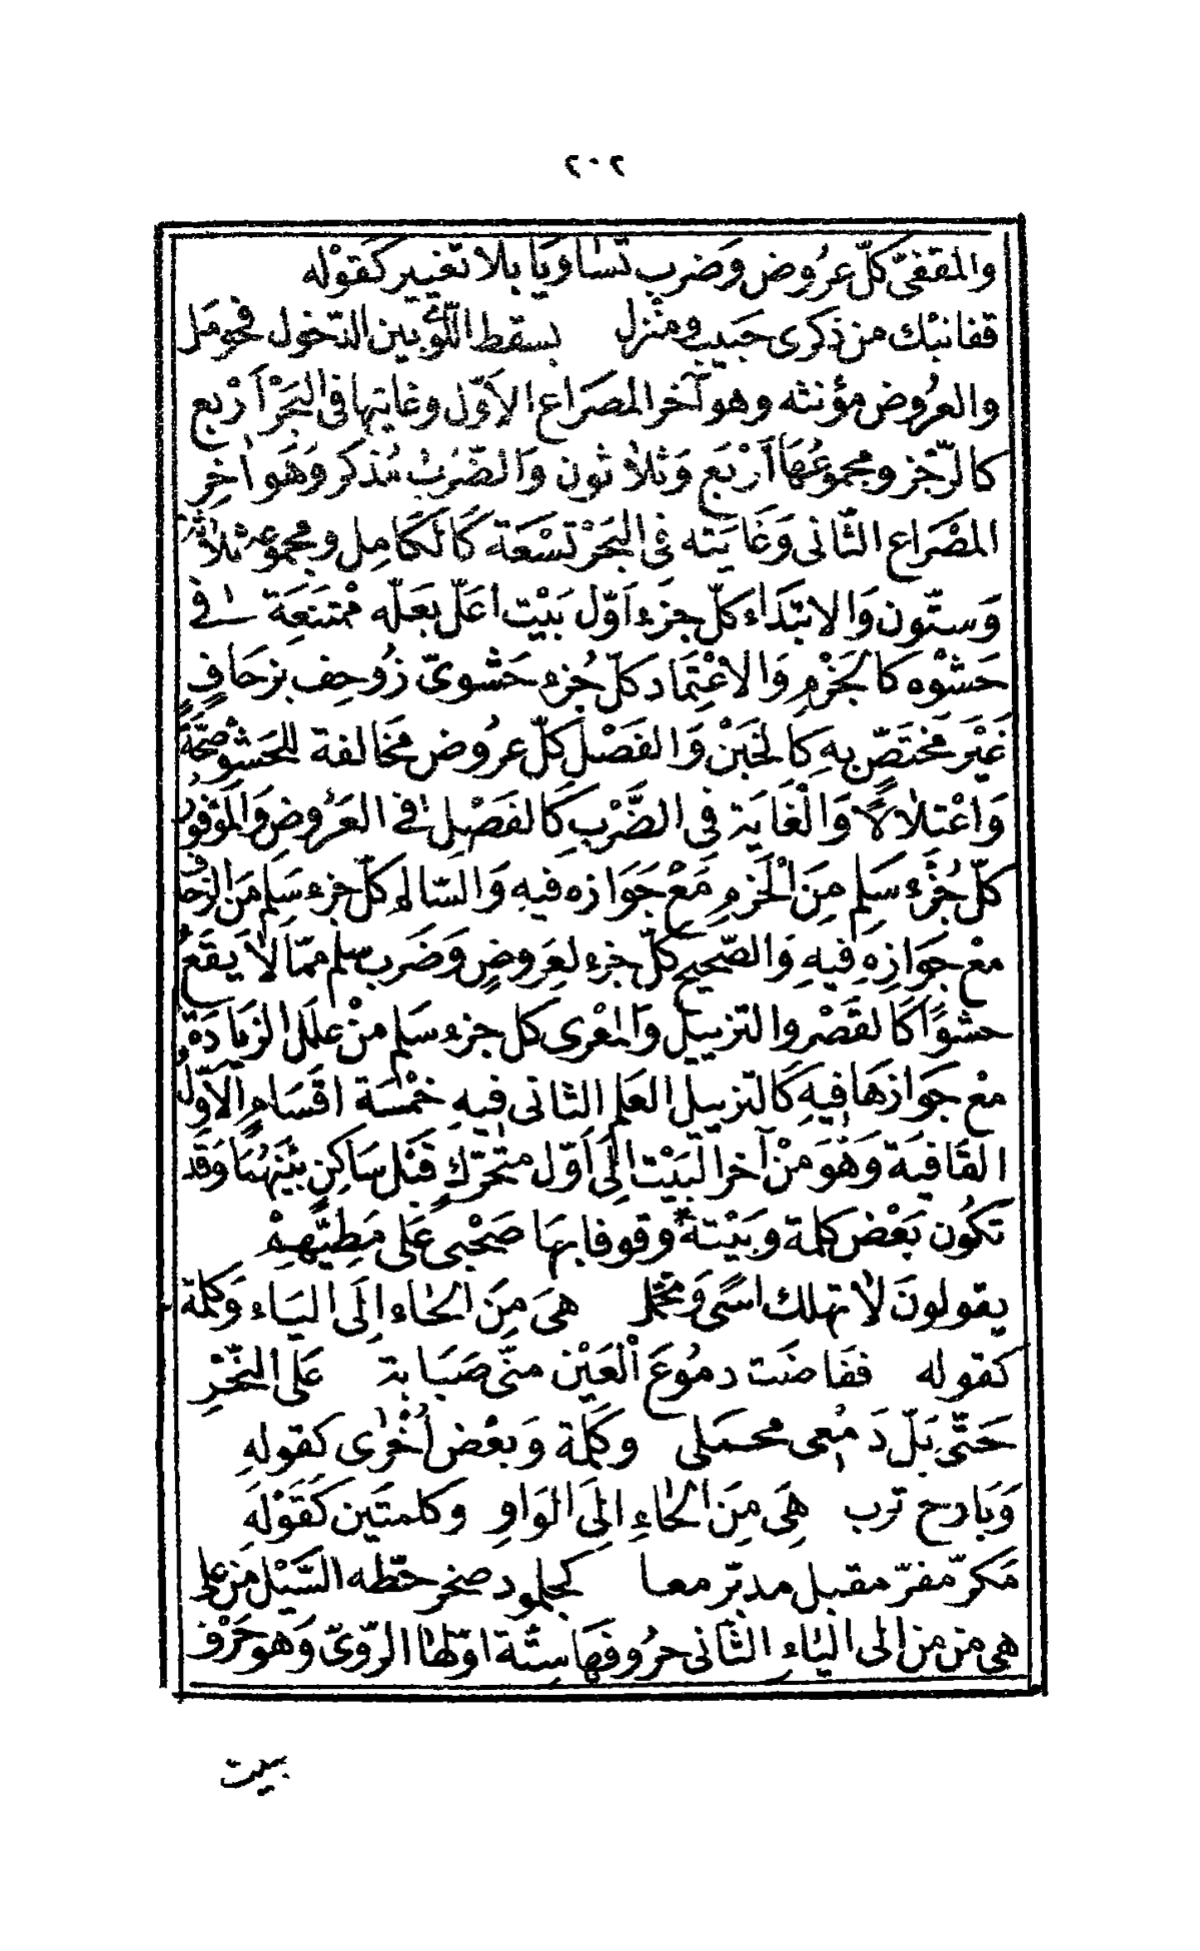 ٢٠٢
والمقفىّ كلّ عرُوض وَضرب تسٰاوَيَا بلا تغيير كَقوْله
قفانبْك من ذكرى حبَيب ومنْزل بسقط اللّوى بين الدّخول فحَومَل
والعرُوض مؤنثه وهو آخر المصرَاع الاَوّل وغايتها فى البَحْر اَرْبع
كالرّجَز ومجموعُهَا اَرْبَع وَثلاثون وَالضّرْب مُذكر وَهَو اٰخِر
المصْرَاع الثّانى وَغَايَته فى البَحْر تسْعَة كَالكَامِل ومجموعه ثلاثة
وَستّون وَالابتدَاء كلّ جزء اَوّل بَيْت اعَلّ بعَلّه ممْتنَعَة فى
حَشْوه كَالخَرْمِ وَالاعْتِمَاد كلّ جُزء حَشْوىّ زُوحِف بزحَافٍ
غَيْر مخْتَصّ بهِ كَالخَبَنْ وَالفَصْل كلّ عرُوض مخَالفة للحَشْو صِحَّةً
وَاعْتلاَلاً وَالْغَايَة فى الضَّرْب كَالفَصْل فى العَرُوض وَالمَوْفور
كلّ جُزْء سَلِم مِنَ الْخَرْمِ مَعْ جَوَازه فيهِ وَالسّالم كلّ جزء سَلِم مَن الزحَاف
معْ جَوَازِهِ فِيهِ وَالصّحيح كلّ جزء لعَروضٍ وَضَرب سلم ممّا لاَ يقعَ
حشوًا كَالقصْر والتزييل وَالمعْرى كل جزء سَلم منْ علَل الزيَادَة
معْ جَوَازهَا فيهِ كَالتزييل العَلم الثانى فيهِ خمْسَة اقسَامٍ الاَوّل
القَافيَة وَهَوَ منْ آخر البَيْت الَى اَوّل متحَرّكٍ قبْل سَاكنٍ بيْنهُمَا وَقَد
تكوُن بَعْض كلمة وبَيْتهُ * وقوفا بهَا صَحْبى عَلى مَطِيَّهمْ
يقولونَ لاَ تهلك اسًى وَتجمّل هىَ مِنَ الحَاء اِلَى اليَاء وَكلمة
كقوله ففاضَت دمُوع اْلعَيْن منّى صَبَابة عَلى النّحْر
حَتّى بَلّ دَمْعى محملى وكلمَة وَبعْض اُخْرٰى كقولهِ
وَبَارح ترب هِىَ مِنَ الحَاءِ اِلَى الوَاوِ وكلمتَين كَقَوْلهَ
مَكرّ مفرّ مقبل مدبّر معا كجلمود صخر حطّه السّيْل من عل
هى من من الى اليٰاءِ الثّانى حرُوفهَا ستّة اوّلهَا الرّوىّ وَهو حَرْف
بنيت